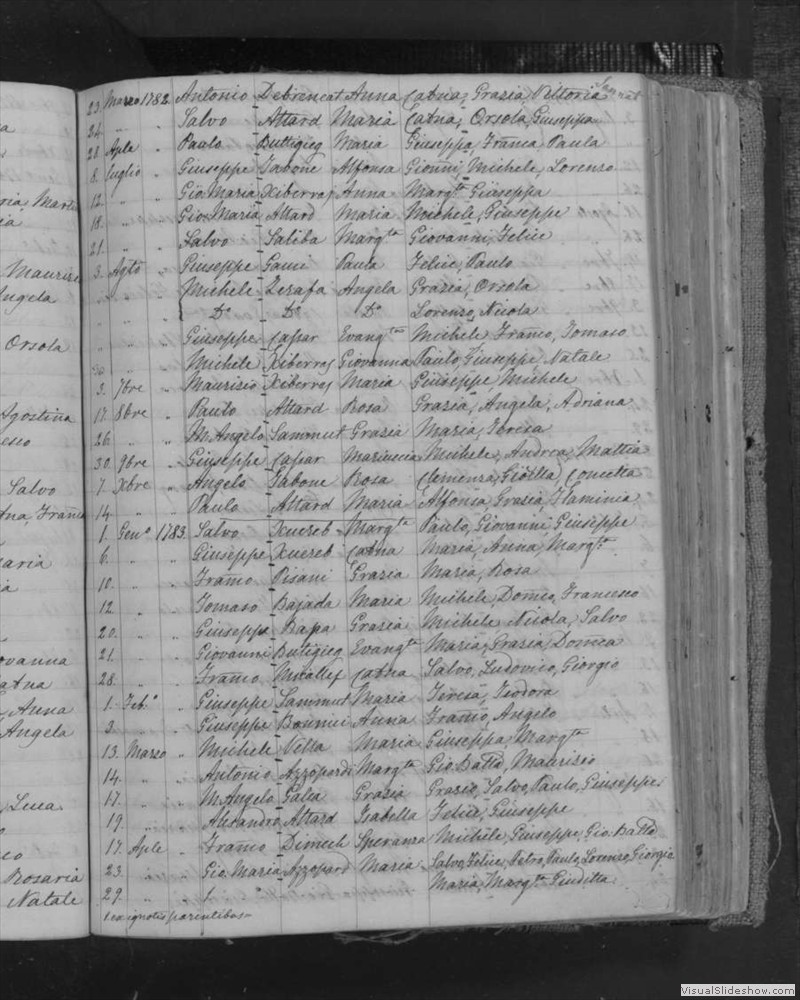 ria Marti
ia
Maurizi
Angela
Orsola
Agostina
esco
Salvo
tna, Franco
aria
ia
ovanna
atna
Anna
Angela
Luca
o
co
Rosaria
Natale
23. Marzo 1782 Antonio Debrincat Anna Catna, Grazia, Vittoria
24. " " Salvo Attard Maria Catna, Orsola, Giuseppa
28. Aple " Paulo Buttigieg Maria Giuseppa, Franca Paula
8. Luglio " Giuseppe Tabone Alfonsa Gionni, Michele, Lorenzo
12. " " Gio Maria Xiberras Anna Margta Giuseppa
18. " " Gio: Maria Attard Maria Michele, Giuseppe
21. " " Salvo Saliba Margta Giovanni, Felice
3. Agto " Giuseppe Gauci Paula Felice, Paulo
" " " Michele Zerafa Angela Grazia, Orsola
" " " Do Do Do Lorenzo, Nicola
" " " Giuseppe Capar Evangta Michele Franco, Tomaso
" " Michele Xiberras Giovanna Paulo, Giuseppe, Natale
3. 7bre " Maurizio Xiberras Maria Giuseppe Michele
17. 8bre " Paulo Attard Rosa Grazia, Angela, Adriana
26. " " M. Angelo Sammut Grazia Maria, Teresa
30. 9bre " Giuseppe Capar Mariuccia Michele, Andrea, Mattia
7. Xbre " Angelo Tabone Rosa Clemenza, Giobtta, Concetta
14. " " Paulo Attard Maria Alfonsa, Grazia, Flaminia
1. Geno 1783. Salvo Xuereb Margta Paulo, Giovanni, Giuseppe
6. " " Giuseppe Xuereb Catna Maria, Anna, Margta
10. " " Franco Pisani Grazia Maria, Rosa
12. " " Tomaso Bajada Maria Michele, Domco, Francesco
20. " " Giuseppe Bapa Grazia Michele Nicola, Salvo
21. " " Giovanni Butigieg Evangta Maria, Grazia, Domca
28. " " Franco Micallef Catna Salvo, Ludovico, Giorgio
1. Febo " Giuseppe Sammut Maria Teresa, Teodora
3. " " Giuseppe Bonnici Anna Franco, Angelo
13. Marzo " Michele Vella Maria Giuseppa, Margta
14. " " Antonio Azzopardi Margta Gio: Batta, Maurizio
17. " " M. Angelo Galea Grazia Grazio, Salvo, Paulo, Giuseppe
19. " " Alesandro Attard Isabella Felice, Giuseppe
17. Aple " Franco Dimech Speranza Michele, Giuseppe, Gio: Batta
23. " " Gio. Maria Azzopard Maria Salvo, Felice, Petro, Paulo, Lorenzo, Giorgio
29. " " 1. " Maria, Margta Giuditta
1. ex ignotis parentibus
VisualSlideshow.com